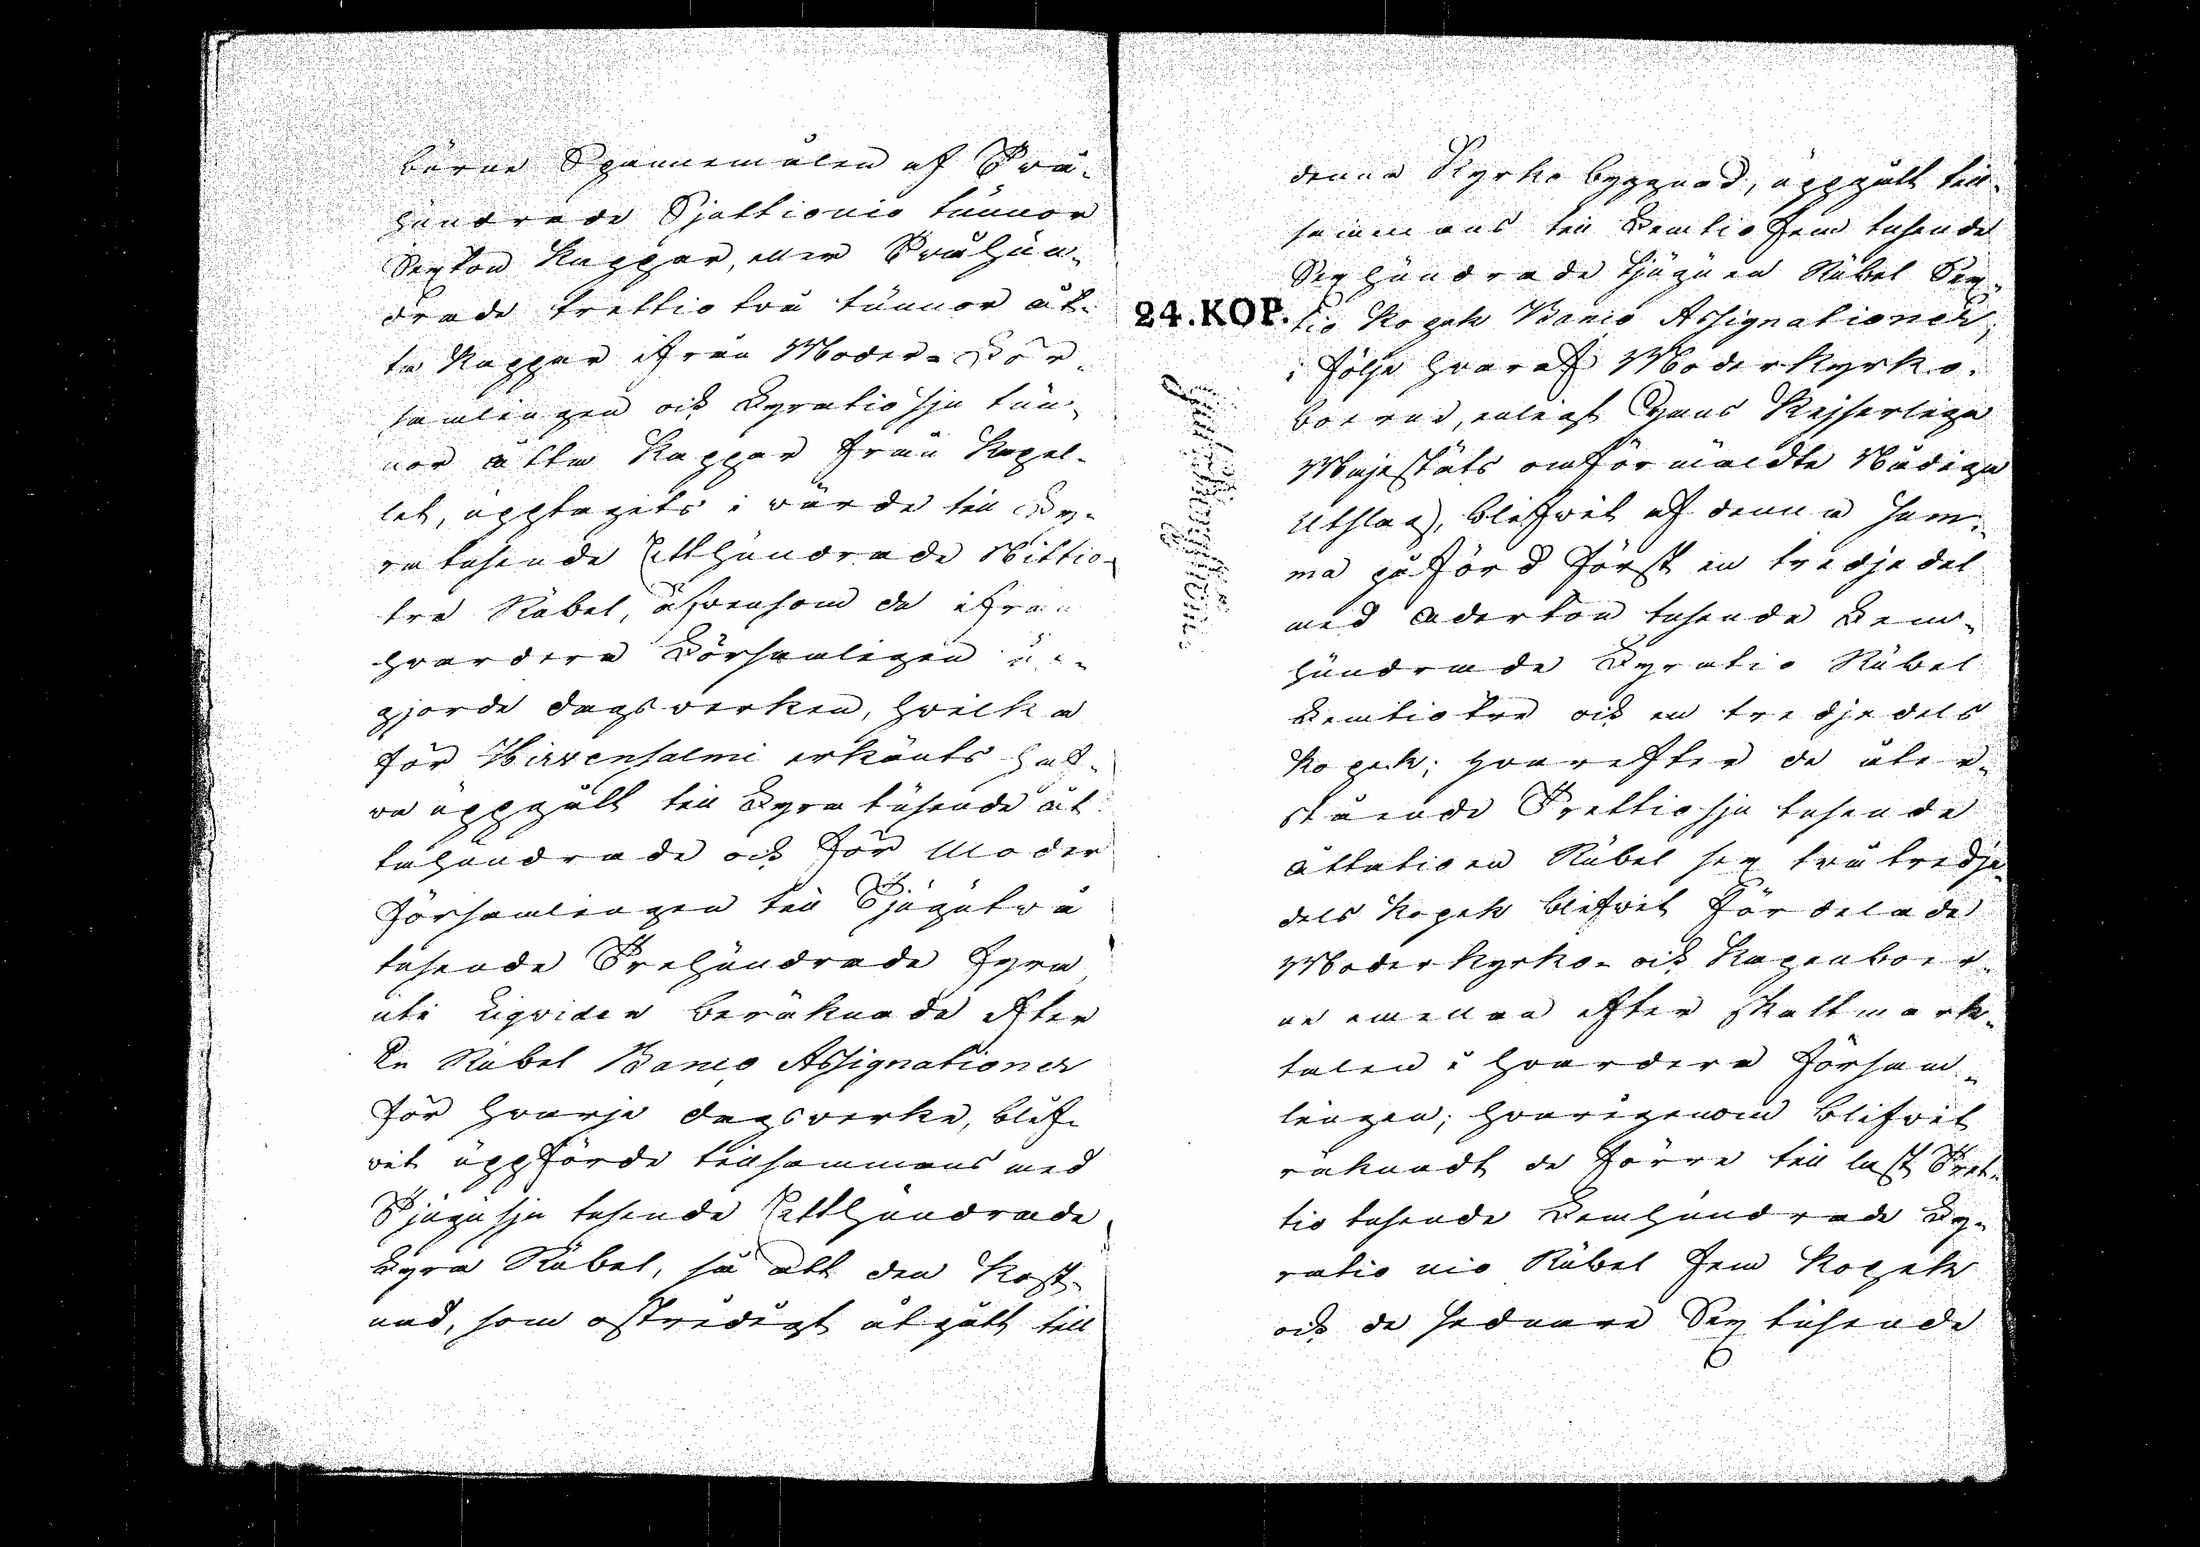 börne Spannemålen af Två-
hundrade Sjuttionio tunnor
Sexton Kappar, eller Tvåhun-
drade trettiotvå tunnor åt-
ta Kappar ifrån Moder-För-
samlingen och Fyratiosju tun-
nor åtta Kappar från Kapel-
let, upptagits i värde till Fy-
ratusende Etthundrade Nittio-
tre Rubel, äfvensom de ifrån
hvardera Församlingen
gjorde dagsverken, hvilka
för Hirvensalmi erkänts haf-
va uppgått till Fyratusende åt-
tahundrade och för Moder
Församlingen till Tjugutvå
tusende Trehundrade fyra,
uti Liqviden beräknade efter
En Rubel Banco Assignationer
för hvarje dagsverke, blif-
vit uppförde tillsammans med
Tjugusju tusende Etthundrade
Fyra Rubel, så att den Kost-
nad, som ostridigt utgått till
denna Kyrkobyggnad, uppgått till-
sammans till Femtiofem tusende
Sexhundrade tjuguen Rubel Sex-
24.KOP. tio Kopek Banco Assignationer,
i följe hvaraf Moderkyrko-
boerne, enligt Hans Kejserliga
Majestäts omförmäldte Nådiga
Utslag, blifvit af denna Sum-
ma påförd först en tredjedel
med Adertontusende Fem-
hundrade Fyratio Rubel
Femtiotre och en tredjedels
Kopek; hvarefter de åter-
stående Trettiosju tusende
åttatioen Rubel sex två tredje-
dels Kopek blifvit fördelade
Moderkyrko- och Kapellboer-
ne emellan efter skattmark-
talen i hvardera Försam-
lingen; hvarigenom blifvit
räknadt de förre till last Tret-
tio tusende Femhundrade Fy-
rationio Rubel fem Kopek
och de sednare Sex tusende
6